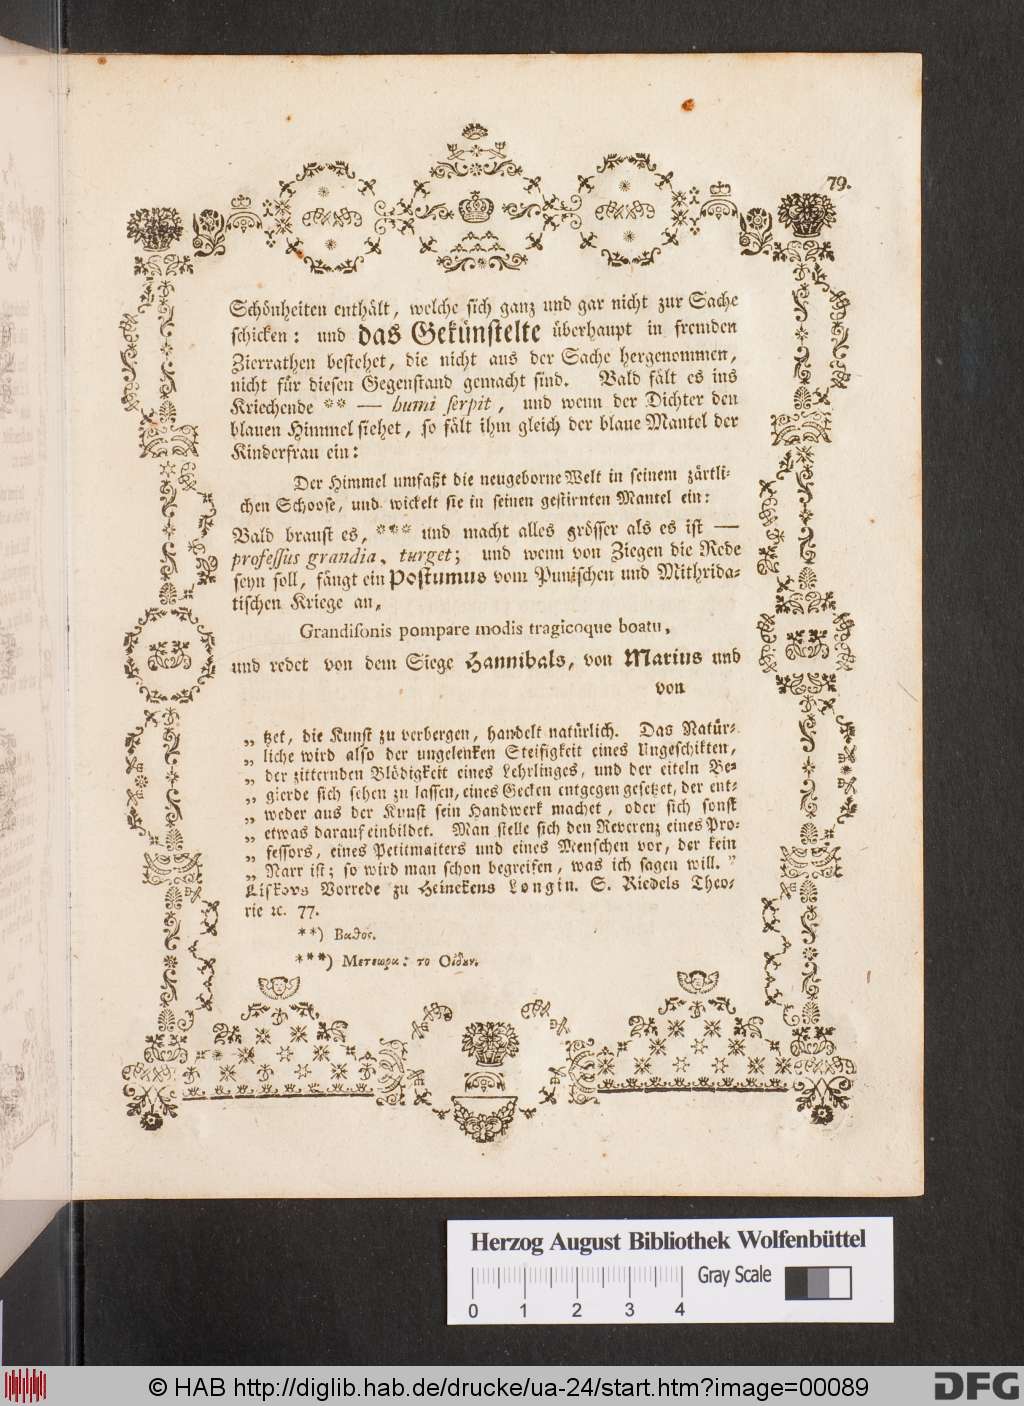 79.
Schönheiten enthält, welche sich ganz und gar nicht zur Sache
schicken: und das Gekünstelte überhaupt in fremden
Zierrathen bestehet, die nicht aus der Sache hergenommen,
nicht für diesen Gegenstand gemacht sind. Bald fält es ins
Kriechende ** — humi serpit, und wenn der Dichter den
blauen Himmel siehet, so fält ihm gleich der blaue Mantel der
Kinderfrau ein:
Der Himmel umfaßt die neugeborne Welt in seinem zärtli-
chen Schoose, und wickelt sie in seinen gestirnten Mantel ein:
Bald braust es, *** und macht alles grösser als es ist —
professus grandia, turget; und wenn von Ziegen die Rede
seyn soll, fängt ein Postumus vom Punischen und Mithrida-
tischen Kriege an,
Grandisonis pompare modis tragicoque boatu,
und redet von dem Siege Hannibals, von Marius und
von
„ tzet, die Kunst zu verbergen, handelt natürlich. Das Natür-
„ liche wird also der ungelenken Steifigkeit eines Ungeschikten,
„ der zitternden Blödigkeit eines Lehrlinges, und der eiteln Be-
„ gierde sich sehen zu lassen, eines Gecken entgegen gesetzet, der ent-
„ weder aus der Kunst sein Handwerk machet, oder sich sonst
„ etwas darauf einbildet. Man stelle sich den Reverenz eines Pro-
„ fessors, eines Petitmaiters und eines Menschen vor, der kein
„ Narr ist; so wird man schon begreifen, was ich sagen will. "
Liskovs Vorrede zu Heinekens Longin. S. Riedels Theo-
rie ꝛc. 77.
**) Βαθος.
***) Μετεωρα: το Οιδουν.
Herzog August Bibliothek Wolfenbüttel
0 1 2 3 4 Gray Scale
© HAB http://diglib.hab.de/drucke/ua-24/start.htm?image=00089 DFG